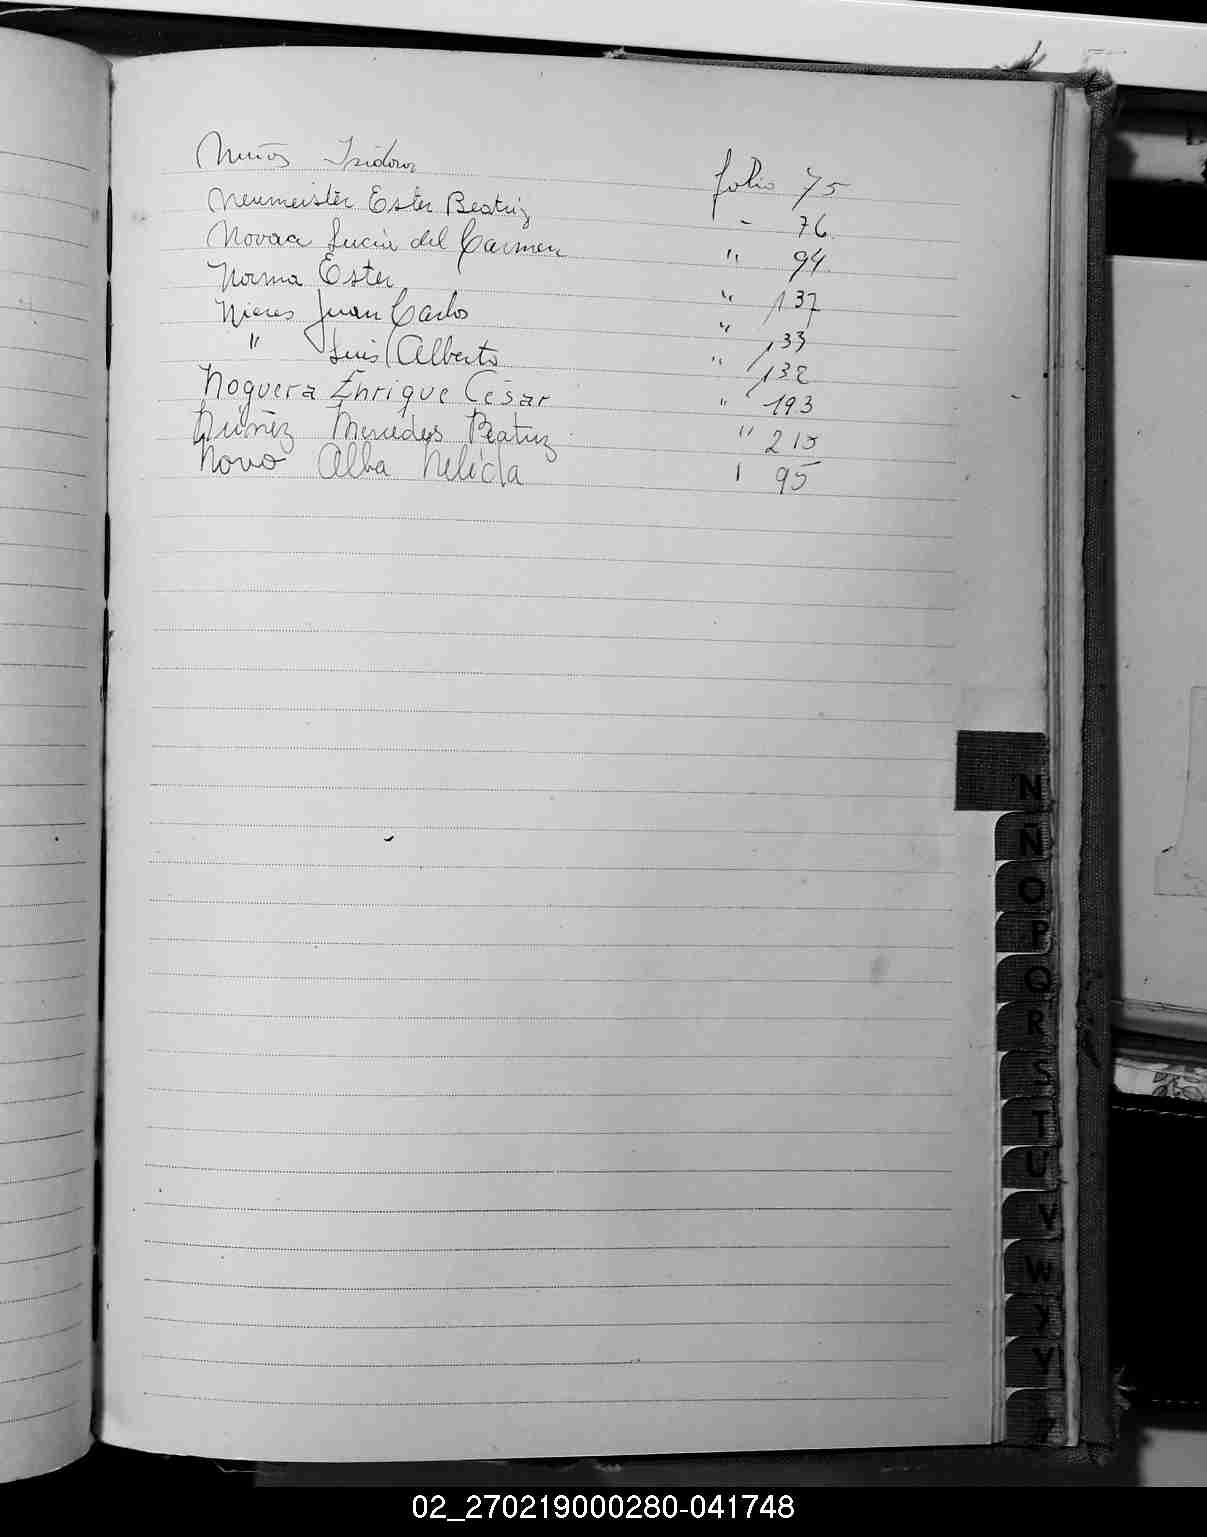 Muñoz Isidoro folio 75
Neumeister Ester Beatriz - 76
Novoa Lucia del Carmen " 94
Norma Ester " 137
Nieres Juan Carlos " 133
" Luis Alberto " 132
Noguera Enrique César " 193
Núñez Mercedes Beatriz " 210
Novo Alba Nelida 95
N
N
O
P
Q
R
S
T
U
V
W
X
Y
Z
02_270219000280-041748